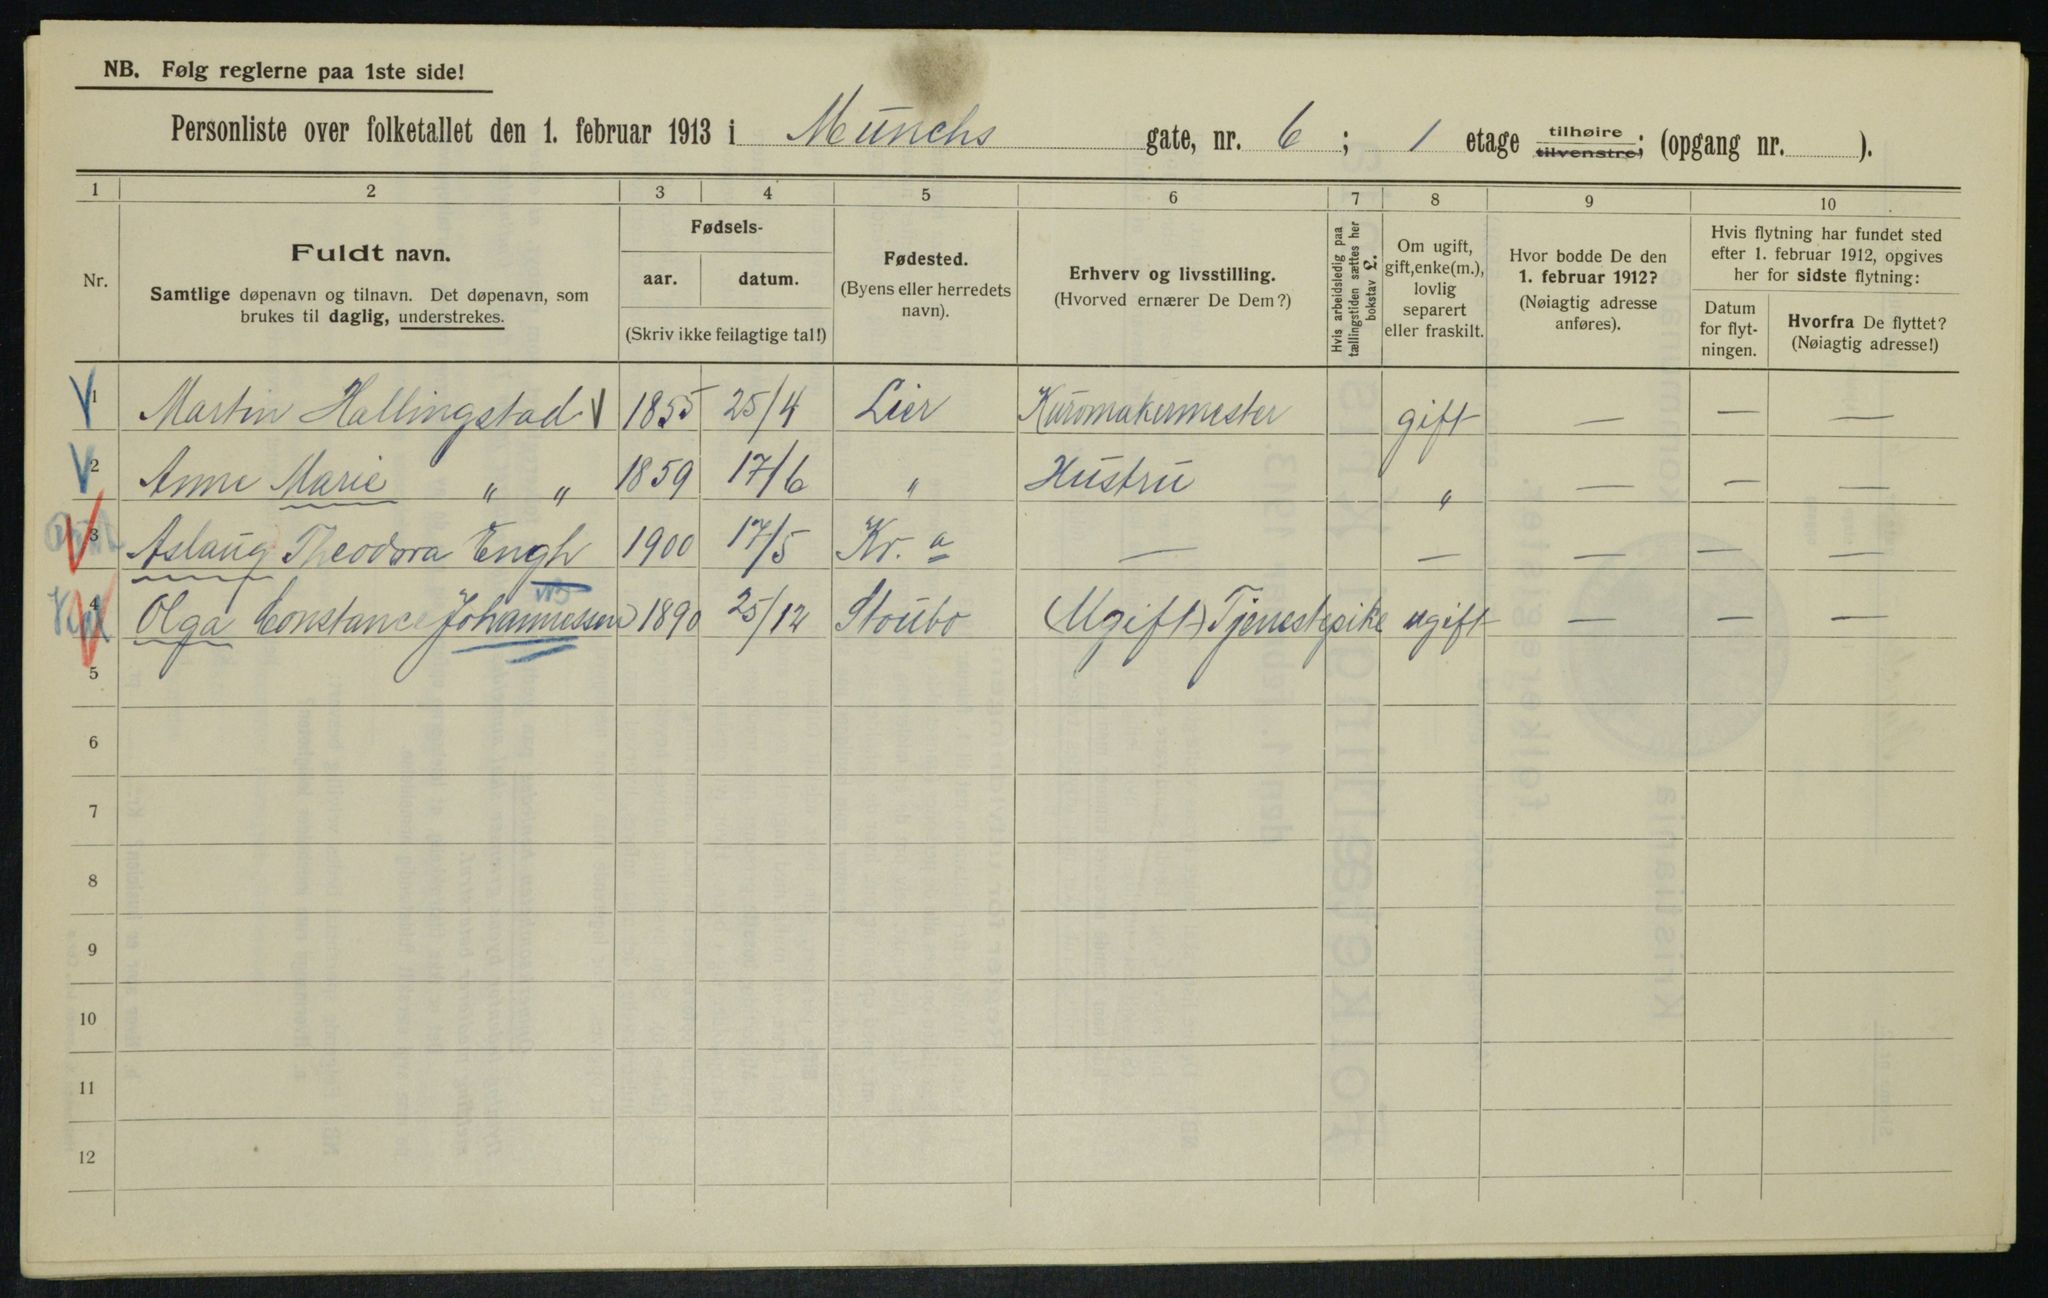 NB. Følg reglerne paa 1ste side!
Personliste over folketallet den 1. februar 1913 i Munchs gate, nr. 6 ; 1 etage tilhøire tilvenstre; (opgang nr. ).
1 2 3 4 5 6 7 8 9 10
Nr.
Fuldt navn.
Samtlige døpenavn og tilnavn. Det døpenavn, som
brukes til daglig, understrekes.
Fødsels-
aar. datum.
(Skriv ikke feilagtige tal!)
Fødested.
(Byens eller herredets
navn).
Erhverv og livsstilling.
(Hvorved ernærer De Dem?)
Hvis arbeidsledig paa
tællingstiden sættes her
bokstav L.
Om ugift,
gift, enke(m.),
lovlig
separert
eller fraskilt.
Hvor bodde De den
1. februar 1912?
(Nøiagtig adresse
anføres).
Hvis flytning har fundet sted
efter 1. februar 1912, opgives
her for sidste flytning:
Datum
for flyt-
ningen.
Hvorfra De flyttet?
(Nøiagtig adresse!)
1 Martin Hallingstad 1855 25/4 Lier Kuromakermester gift — — —
2 Anne Marie " " 1859 17/6 " Hustru " — — —
3 Aslaug Theodora Engh 1900 17/5 Kr. a — — — — —
4 Olga Constance Johannessen 1890 25/12 Stoubo (Ugift) Tjenestepike ugift — — —
5
6
7
8
9
10
11
12